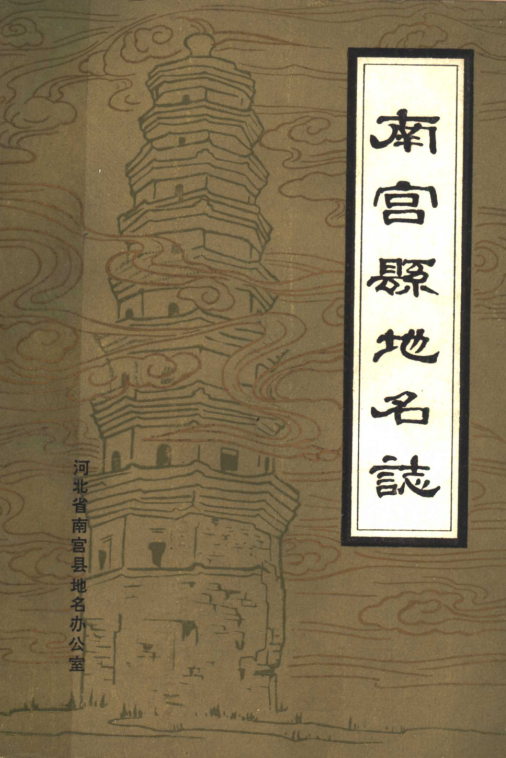 南宫縣地名誌
河北省南宫县地名办公室